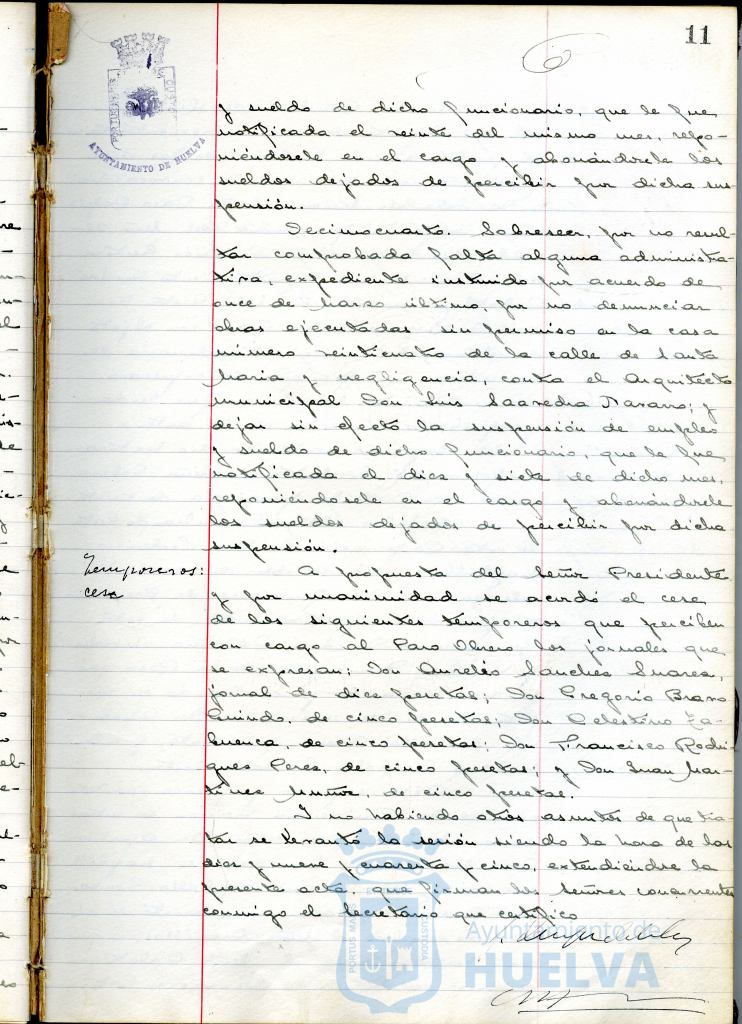 11
AYUNTAMIENTO DE HUELVA
y sueldo de dicho funcionario, que le fue
notificada el veinte del mismo mes, repo-
niéndosele en el cargo y abonándosele los
sueldos dejados de percibir por dicha sus-
pensión.
Decimocuarto. Sobreseer, por no resul-
tar comprobada falta alguna administra-
tiva, expediente instruido por acuerdo de
once de Marzo último, por no denunciar
obras ejecutadas sin permiso en la casa
número veinticuatro de la calle de Santa
María y negligencia, contra el Arquitecto
municipal Don Luis Saavedra Navarro; y
dejar sin efecto la suspensión de empleo
y sueldo de dicho funcionario, que le fue
notificada el diez y siete de dicho mes,
reponiéndosele en el cargo y abonándosele
los sueldos dejados de percibir por dicha
suspensión.
Temporeros:
cese
A propuesta del Señor Presidente
y por unanimidad se acordó el cese
de los siguientes temporeros que perciben
con cargo al Paro Obrero los jornales que
se expresan: Don Aurelio Sanchez Suarez,
jornal de diez pesetas; Don Gregorio Bravo
Guindo, de cinco pesetas; Don Celestino Za-
buenca, de cinco pesetas; Don Francisco Rodri-
guez Perez, de cinco pesetas; y Don Juan Mar-
tinez Muñoz, de cinco pesetas.
Y no habiendo otros asuntos de que tra-
tar se levantó la sesión siendo la hora de las
diez y nueve y cuarenta y cinco, extendiéndose la
presente acta, que firman los Señores concurrentes
conmigo el Secretario que certifico
PORTUS MARIS ET TERRAE CUSTODIA
Ayuntamiento de
HUELVA